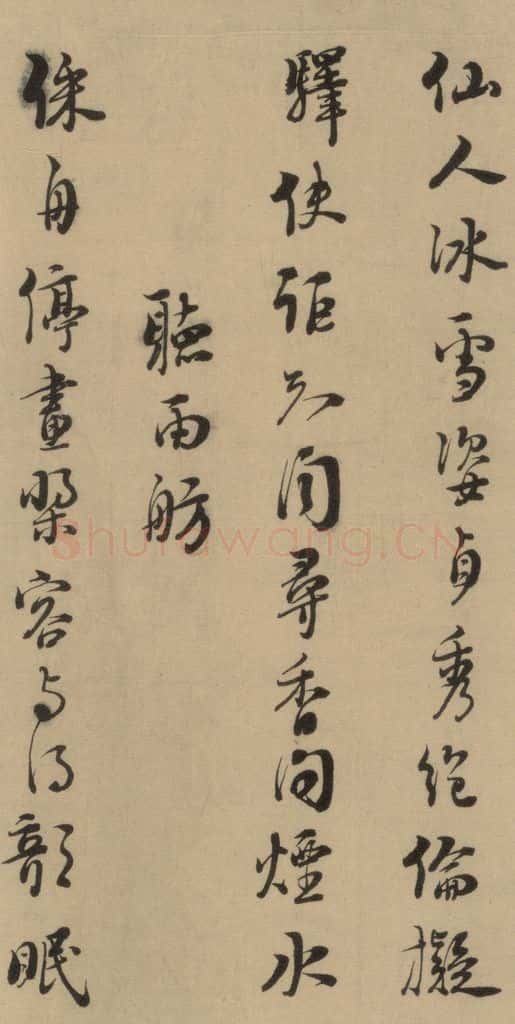 仙人冰雪姿貞秀絕倫擬
驛使詎知聞尋香問煙水
聽雨舫
倸舟停畫槳容與得欹眠
Shufawang.CN